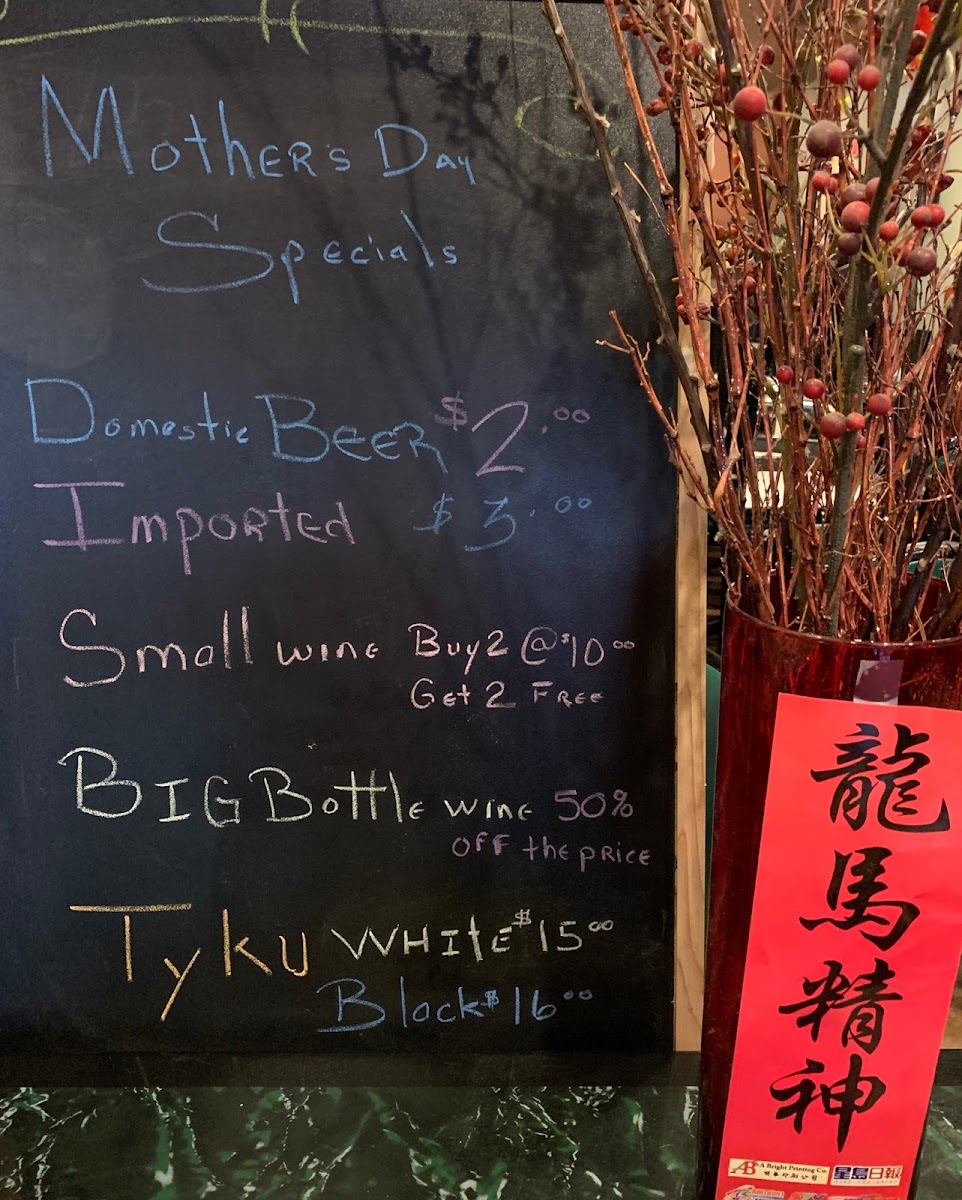 Mother's Day
Specials
Domestic Beer $2.00
Imported $3.00
Small wine Buy 2 @ $10.00
Get 2 Free
BIG Bottle wine 50%
OFF the price
Tyku White $15.00
Block $16.00
龍馬精神
AB A Bright Printing Co.
星島日報